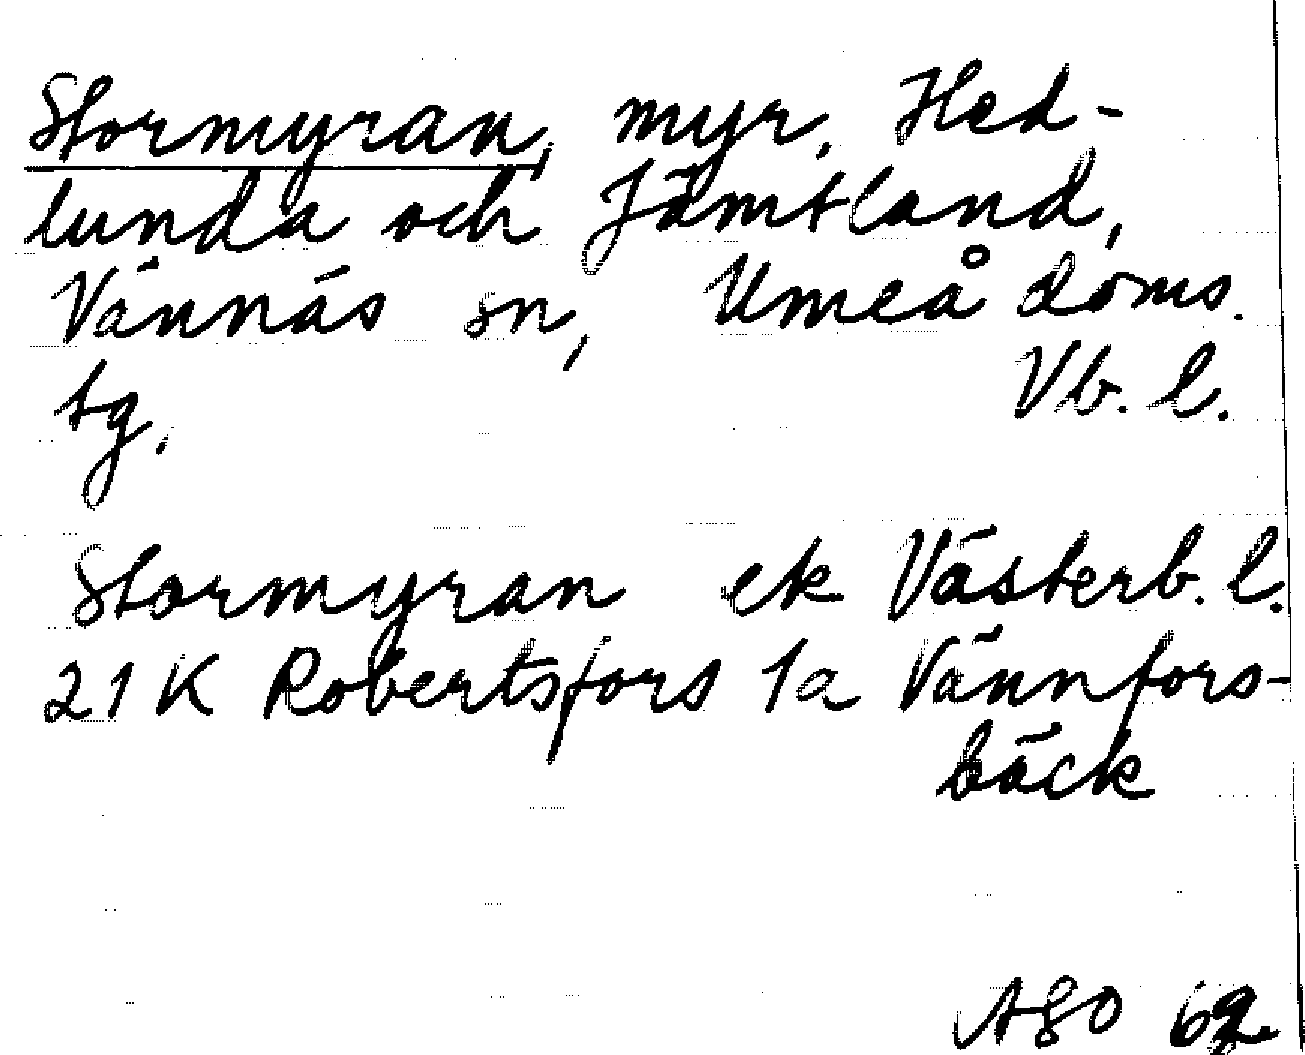 Stormyran, myr. Hed-
lunda och Jämtland,
Vännäs sn, Umeå doms.
tg. Vb. l.
Stormyran ek Västerb. l.
21 K Robertsfors 1a Vännfors-
bäck